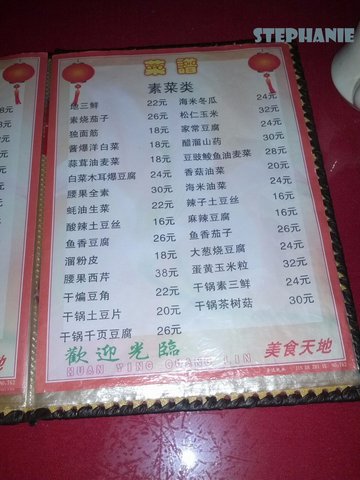 STEPHANIE
菜谱
素菜类
地三鲜 22元 海米冬瓜 24元
素烧茄子 26元 松仁玉米 32元
独面筋 18元 家常豆腐 24元
酱爆洋白菜 18元 醋溜山药 30元
蒜茸油麦菜 18元 豆豉鲮鱼油麦菜 28元
白菜木耳爆豆腐 24元 香菇油菜 24元
腰果全素 30元 海米油菜 24元
蚝油生菜 22元 辣子土豆丝 16元
酸辣土豆丝 16元 麻辣豆腐 16元
鱼香豆腐 26元 鱼香茄子 28元
溜粉皮 18元 大葱烧豆腐 24元
腰果西芹 38元 蛋黄玉米粒 32元
干煸豆角 22元 干锅素三鲜 24元
干锅土豆片 20元 干锅茶树菇 30元
干锅千页豆腐 26元
歡迎光臨
HUAN YING GUANG LIN
美食天地